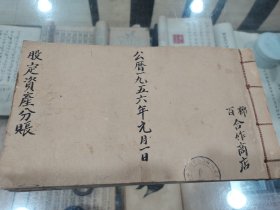 百聯合作商店
公曆一九五六年元月一日
股定資產分賬